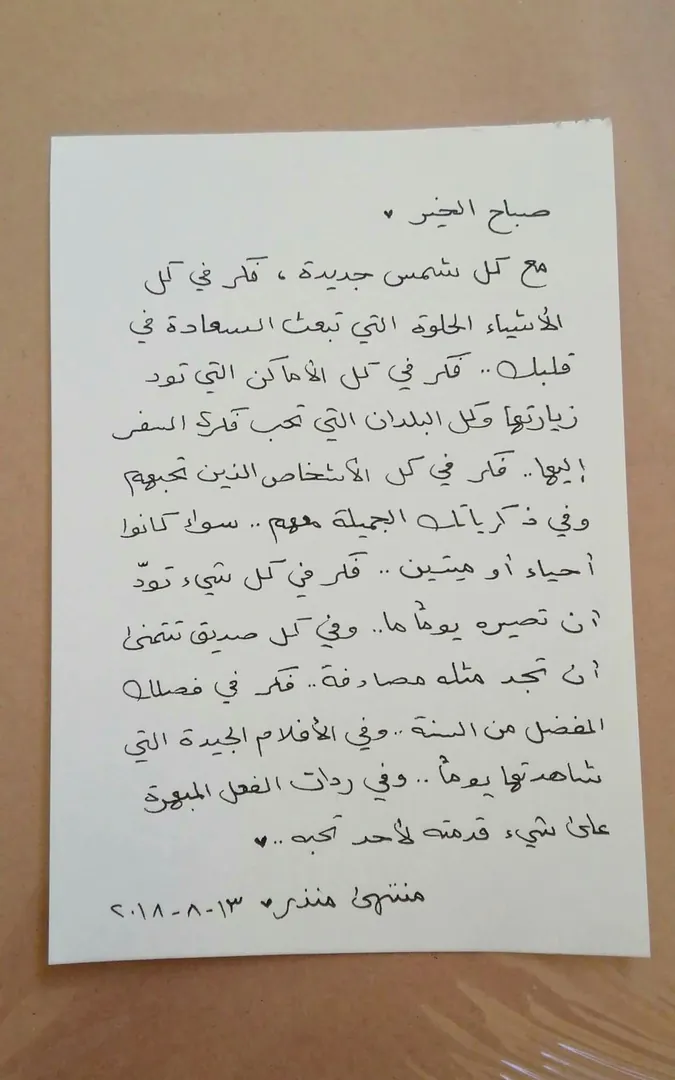 صباح الخير ♥
مع كل شمس جديدة ، فكر في كل
الأشياء الحلوة التي تبعث السعادة في
قلبك .. فكر في كل الأماكن التي تود
زيارتها وكل البلدان التي تحب فكرة السفر
إليها .. فكر في كل الأشخاص الذين تحبهم
وفي ذكرياتك الجميلة معهم .. سواء كانوا
أحياء أو ميتين .. فكر في كل شيء تودّ
أن تصيره يوماً ما .. وفي كل صديق تتمنى
أن تجد مثله مصادفة .. فكر في فصلك
المفضل من السنة .. وفي الأفلام الجيدة التي
شاهدتها يوماً .. وفي ردات الفعل المبهرة
على شيء قدمته لأحد تحبه .. ♥
منتهى منذر ♥ ١٣-٨-٢٠١٨